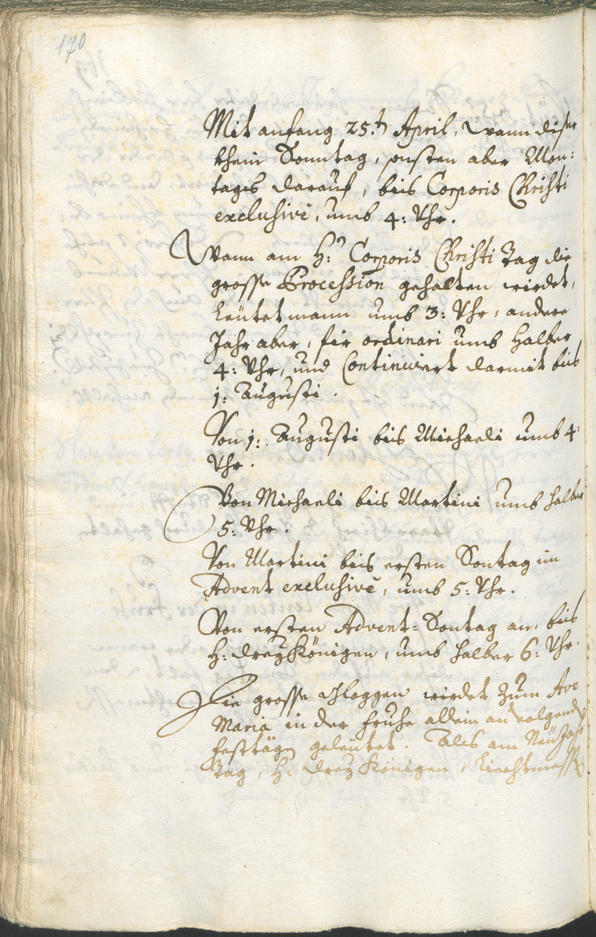 170
Mit anfang 25.t April, wann diser
khein Sonntag, sonsten aber Mon:
tags darauf, biis Corporis Christi
exclusivè, umb 4: Uhr.
Wann am H: Corporis Christi Tag die
grosse Procession gehalten wirdet,
leütet mann umb 3: Uhr, andere
Jahr aber, fir ordinari umb halber
4: Uhr, und Continuiert darmit biis
1: Augusti.
Von 1: Augusti biis Michaeli umb 4:
Uhr.
Von Michaeli biis Martini umb halber
5: Uhr.
Von Martini biis ersten Sontag im
Advent exclusivè, umb 5: Uhr.
Von ersten Advent-Sontag an, biis
H: drey Königen, umb halber 6: Uhr.
Die grosse Gloggen wirdet zum Ave
Maria in der fruhe allein an volgenden
festtägen geleütet. Als am Neü Jahr
Tag, H: drey Königen, Liechtmess